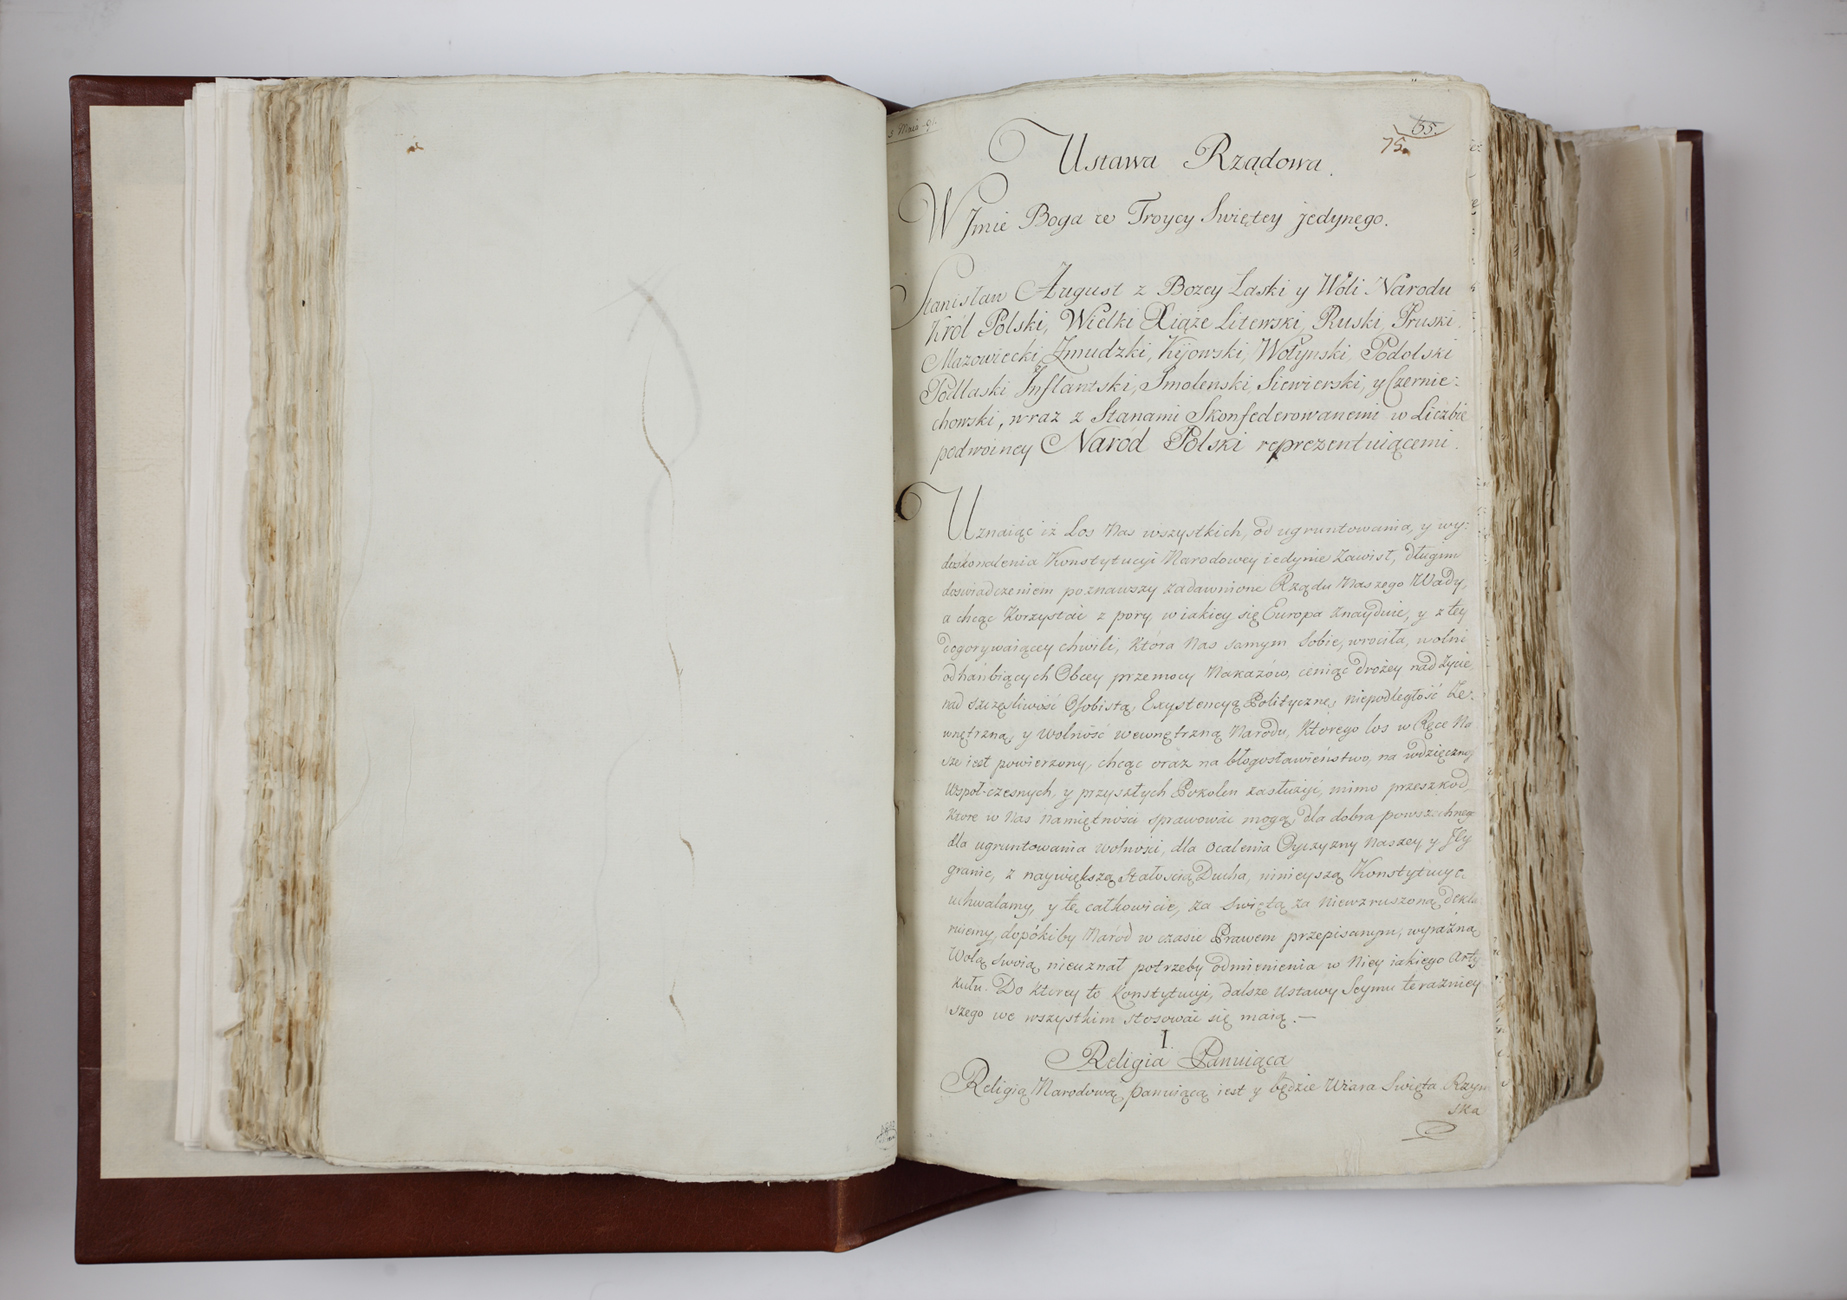 3 Maia 91.
65.
75.
Ustawa Rządowa.
W Jmie Boga w Troycy Swiętey jedynego.
Stanisław August z Bożey Łaski y Woli Narodu
Król Polski, Wielki Xiąże Litewski, Ruski, Pruski,
Mazowiecki, Zmudzki, Kijowski, Wołynski, Podolski
Podlaski, Inflantski, Smolenski, Siewierski, y Czernie:
chowski, wraz z Stanami Skonfederowanemi w Liczbie
podwoiney Naród Polski reprezentuiącemi.
Uznaiąc iż Los Nas wszystkich, od ugruntowania, y wy:
doskonalenia Konstytucyi Narodowey iedynie zawisł, długim
doswiadczeniem poznawszy zadawnione Rządu Naszego Wady,
a chcąc korzystać z pory, w iakiey się Europa znayduie, y z tey
dogorywaiącey chwili, która Nas samym sobie, wrociła, wolni
od hańbiących Obcey przemocy Nakazów, ceniąc drożey nad życie,
nad szczęsliwość Osobistą, Exystencyą Polityczną, niepodległość Ze:
wnętrzną, y wolność wewnętrzną Narodu, którego los w Ręce Na
sze iest powierzony, chcąc oraz na błogosławieństwo, na wdzięczność
współczesnych, y przyszłych Pokolen zasłużyć, mimo przeszkod,
które w Nas Namiętności sprawować mogą, dla dobra powszechnego
dla ugruntowania wolności, dla ocalenia Oyczyzny Naszey y Jey
granic, z naywiększą stałoscią Ducha, ninieyszą Konstytucyę
uchwalamy, y tę całkowicie, za Swiętą, za Niewzruszoną dekla
ruiemy, dopókiby Naród w czasie Prawem przepisanym, wyraźną
Wolą swoią, nieuznał potrzeby odmienienia w Niey iakiego Arty
kułu. Do ktorey to Konstytucyi, dalsze Ustawy Seymu teraźniey
szego we wszystkim stosować się maią.—
I.
Religia Panuiąca
Religią Narodową panuiącą iest y będzie Wiara Swięta Rzym
ska